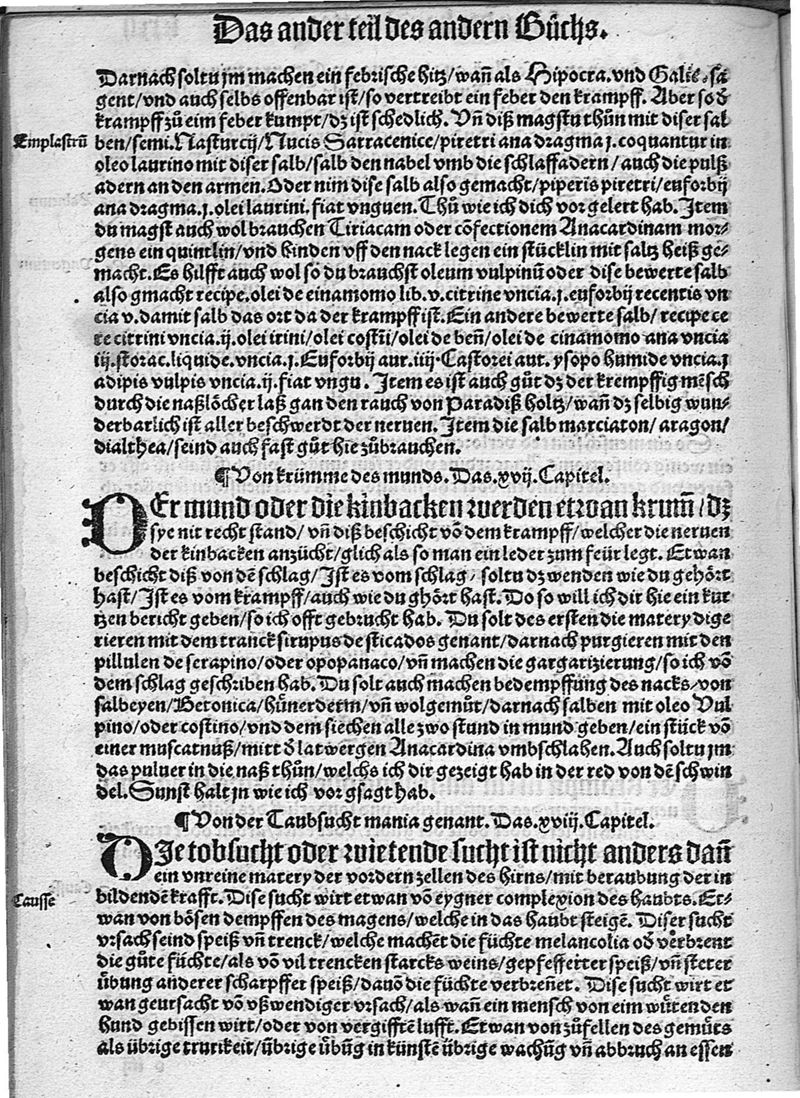 Das ander teil des andern Bůchs.
Darnach soltu jm machen ein febrische hitz/wañ als Hipocra. vnd Galiẽ. sa
gent/vnd auch selbs offenbar ist/so vertreibt ein feber den krampff. Aber so ď
krampff zů eim feber kumpt/dz ist schedlich. Vñ diß magstu thůn mit diser sal
Emplastrũ
ben/semi. Nasturcij/Nucis Sarracenice/piretri ana dragma j. coquantur in
oleo laurino mit diser salb/salb den nabel vmb die schlaffadern/auch die pulß
adern an den armen. Oder nim dise salb also gemacht/piperis piretri/euforbij
ana dragma. j. olei laurini. fiat vnguen. Thů wie ich dich vor gelert hab. Item
du magst auch wol brauchen Tiriacam oder cõfectionem Anacardinam mor⸗
gens ein quintlin/vnd hinden vff den nack legen ein stücklin mit saltz heiß ge⸗
macht. Es hilfft auch wol so du brauchst oleum vulpinũ oder dise bewerte salb
also gmacht recipe. olei de einamomo lib. v. citrine vncia. j. euforbij recentis vn
cia v. damit salb das ort da der krampff ist. Ein andere bewerte salb/recipe ce
re citrini vncia. ij. olei irini/olei costĩ/olei de beñ/olei de cinamomo ana vncia
iij. storac. liquide. vncia. j. Euforbij aur. iiij. Castorei aut. ysopo humide vncia. j
adipis vulpis vncia. ij. fiat vngu. Item es ist auch gůt dz der krempffig mẽsch
durch die naßlöcher laß gan den rauch von Paradiß holtz/wañ dz selbig wun⸗
derbarlich ist aller beschwerdt der neruen. Item die salb marciaton/aragon/
dialthea/seind auch fast gůt hie zůbrauchen.
¶ Von krümme des munds. Das. xvij. Capitel.
DEr mund oder die kinbacken werden etwan krum̃/dz
sye nit recht stand/vñ diß beschicht võ dem krampff/welcher die neruen
der kinbacken anzücht/glich als so man ein leder zum feür legt. Etwan
beschicht diß von dẽ schlag/Ist es vom schlag/soltu dz wenden wie du gehört
hast/Ist es vom krampff/auch wie du ghört hast. Do so will ich dir hie ein kur
tzen bericht geben/so ich offt gebrucht hab. Du solt des ersten die matery dige
rieren mit dem tranck sirupus de sticados genant/darnach purgieren mit den
pillulen de serapino/oder opopanaco/vñ machen die gargarizierung/so ich võ
dem schlag geschriben hab. Du solt auch machen bedempffung des nacks/von
salbeyen/Betonica/hünerderm/vñ wolgemůt/darnach salben mit oleo Vul
pino/oder costino/vnd dem siechen alle zwo stund in mund geben/ein stück võ
einer muscatnuß/mitt ď latwergen Anacardina vmbschlahen. Auch soltu jm
das puluer in die naß thůn/welchs ich dir gezeigt hab in der red von dẽ schwin
del. Sunst halt jn wie ich vor gsagt hab.
¶ Von der Taubsucht mania genant. Das. xviij. Capitel.
DIe tobsucht oder wietende sucht ist nicht anders dañ
ein vnreine matery der vordern zellen des hirns/mit beraubung der in
Causse
bildendẽ krafft. Dise sucht wirt etwan võ eygner complexion des haubts. Et⸗
wan von bösen dempffen des magens/welche in das haubt steigẽ. Diser sucht
vrsach seind speiß vñ trenck/welche machẽt die füchte melancolia oď verbrent
die gůte füchte/als võ vil trencken starcks weins/gepfefferter speiß/vñ steter
übung anderer scharpffer speiß/dauõ die füchte verbreñet. Dise sucht wirt et
wan geursacht võ vßwendiger vrsach/als wañ ein mensch von eim wütenden
hund gebissen wirt/oder von vergifftẽ lufft. Etwan von zůfellen des gemůts
als übrige trurikeit/übrige übũg in künstẽ übrige wachũg vñ abbruch an essen